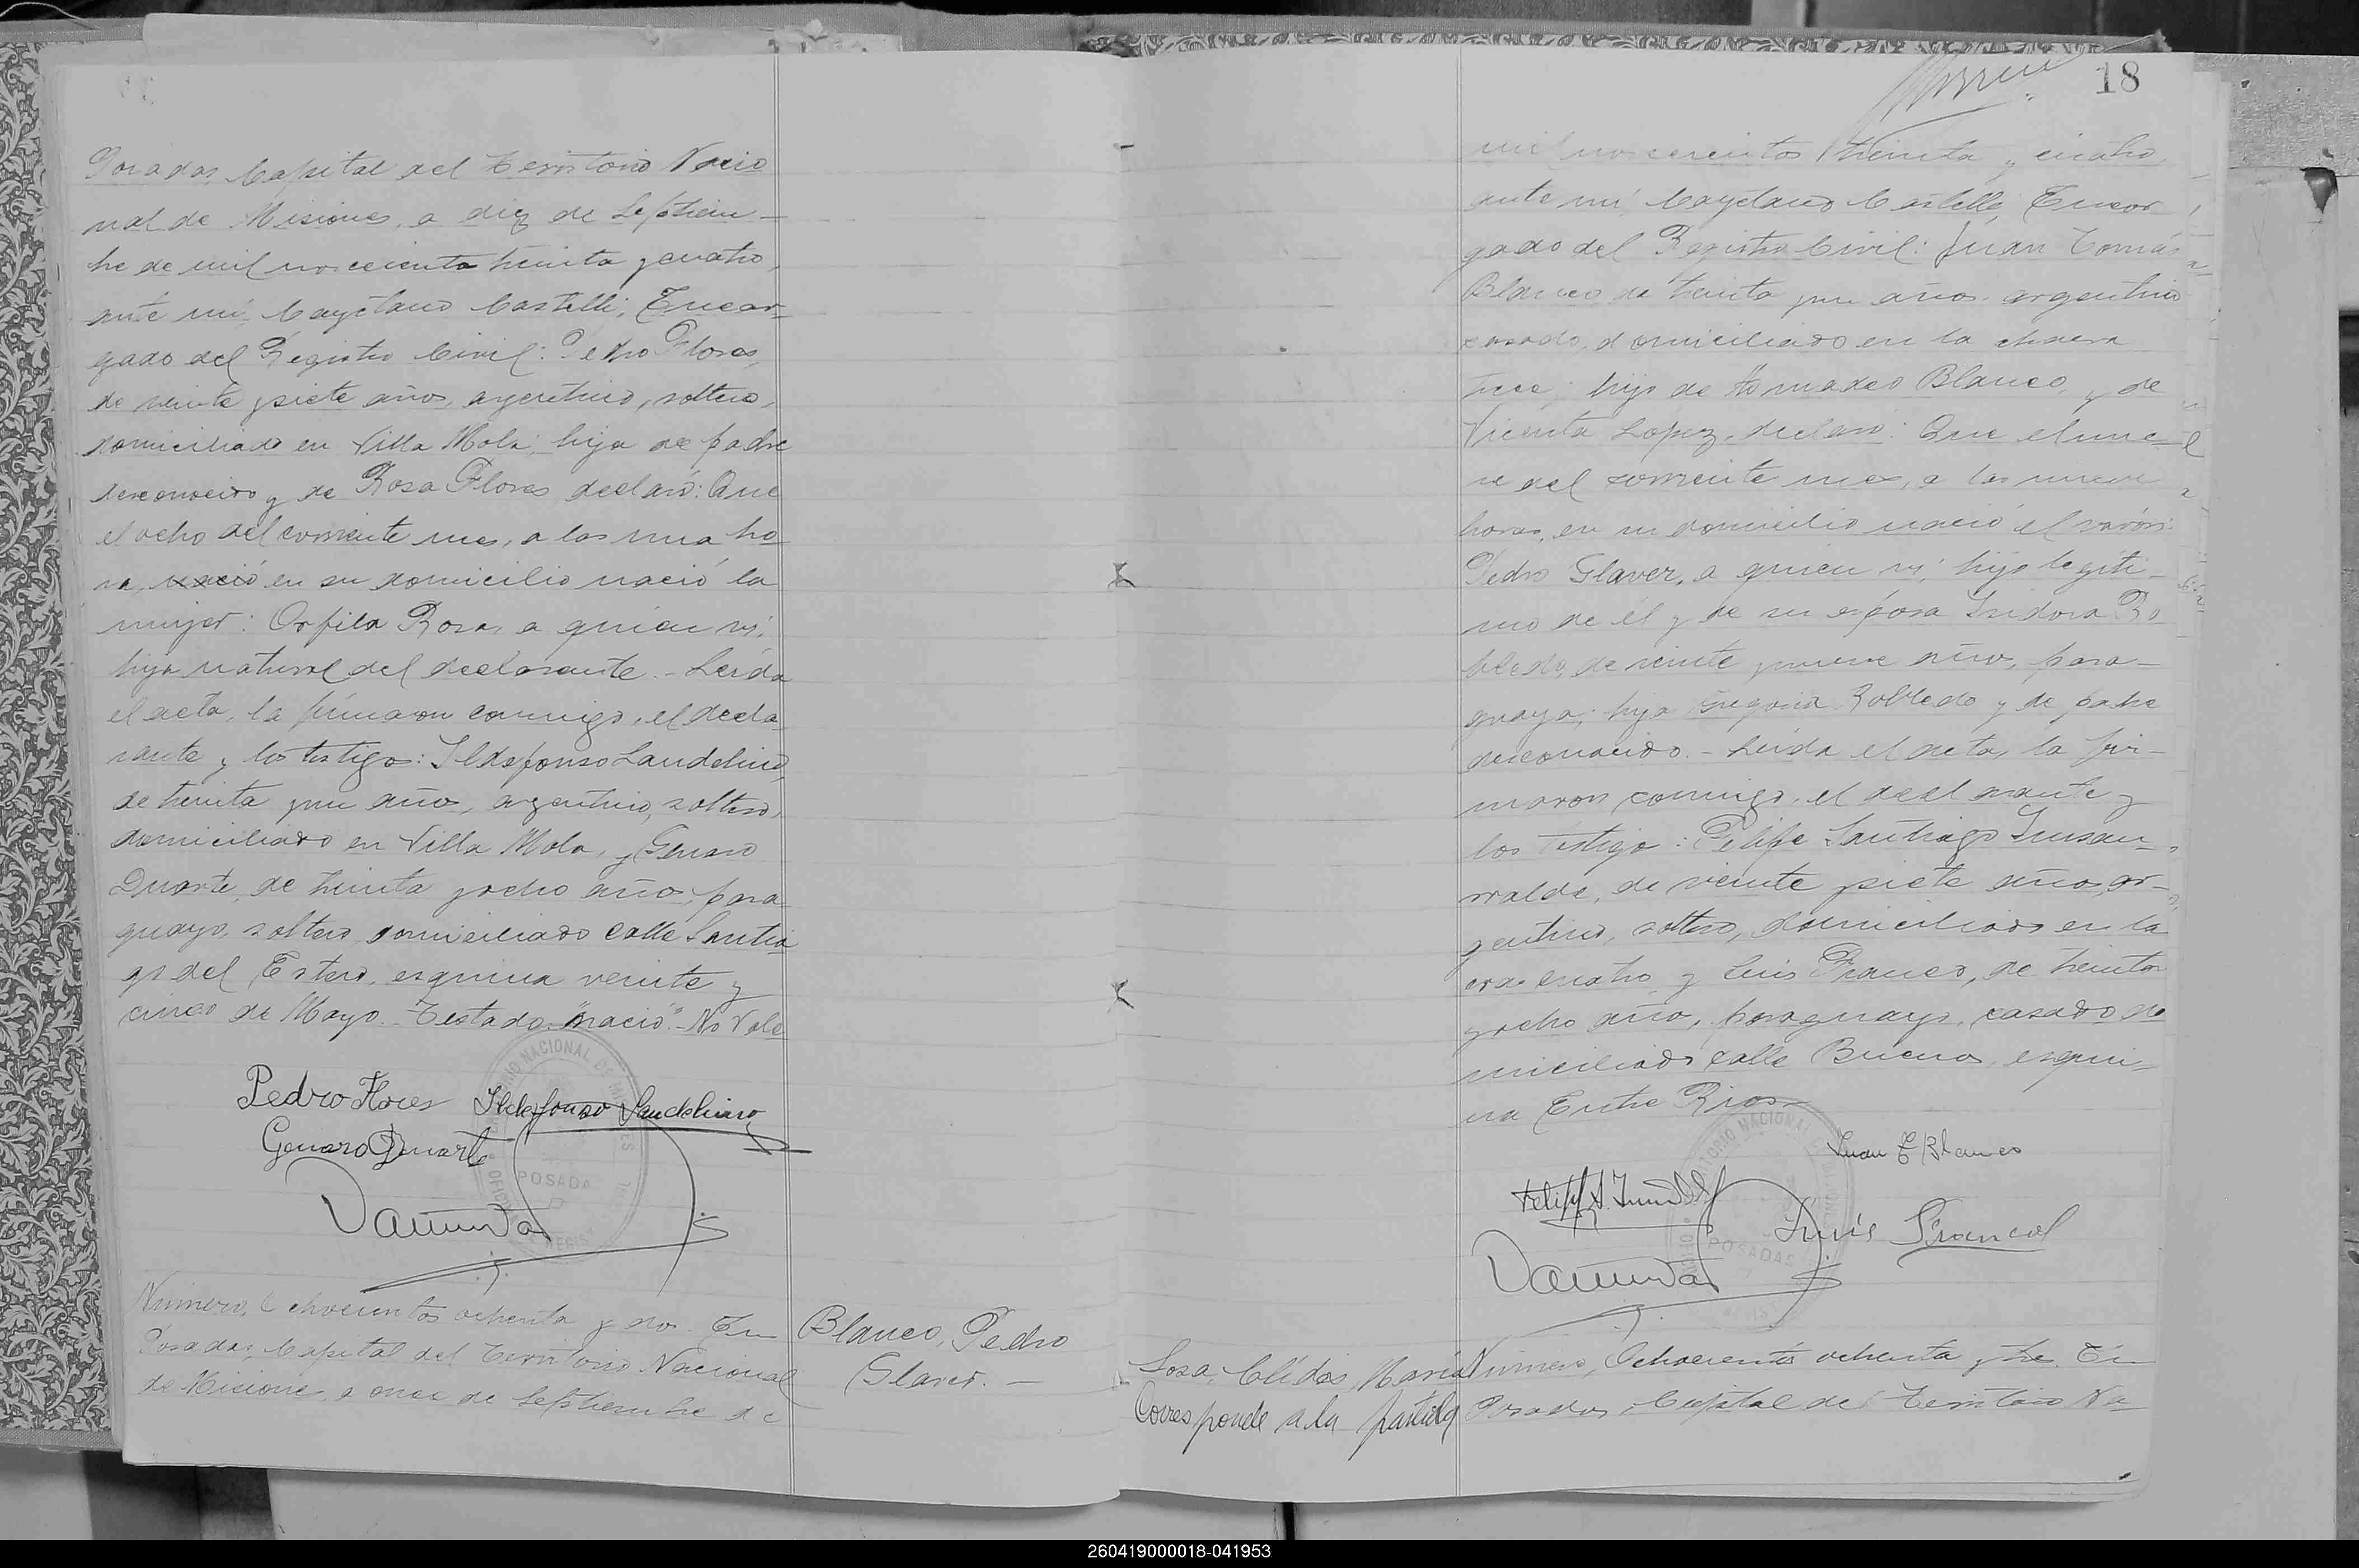 Posadas, Capital del Territorio Nacio
nal de Misiones, a diez de Septiem-
bre de mil novecientos treinta y cuatro,
ante mí, Cayetano Castelli, Encar-
gado del Registro Civil: Pedro Flores,
de veinte y siete años, argentino, soltero,
domiciliado en Villa Mola; hijo de padre
desconocido y de Rosa Flores declaró: Que
el ocho del corriente mes, a las una ho
ra, nació en su domicilio nació la
mujer: Orfila Rosa, a quien ví,
hija natural del declarante.- Leída
el acta, la firmaron conmigo, el decla
rante y los testigos: Ildefonso Laudelino,
de treinta y un años, argentino, soltero,
domiciliado en Villa Mola, y Genaro
Duarte, de treinta y ocho años, para
guayo, soltero, domiciliado calle Santia
go del Estero, esquina veinte y
cinco de Mayo.- Testado "nació".- No Vale
Pedro Flores Ildefonso Laudelino
Genaro Duarte
POSADAS
Número, Ochocientos ochenta y dos. En
Posadas, Capital del Territorio Nacional
de Misiones, a once de Septiembre de
Blanco, Pedro
Glaver.-
18
mil novecientos treinta y cuatro,
ante mí, Cayetano Castelli, Encar
gado del Registro Civil: Juan Tomás
Blanco de treinta y un años, argentino
casado, domiciliado en la chacra
trece, hijo de Amadeo Blanco, y de
Vicenta Lopez, declaró: Que el nue
ve del corriente mes, a las nueve
horas, en su domicilio nació el varón:
Pedro Glaver, a quien ví, hijo legíti-
mo de él y de su esposa Isidora Ro
bledo, de veinte y nueve años, para-
guaya; hija Gregoria Robledo y de padre
desconocido.- Leída el acta, la fir-
maron conmigo, el declarante y
los testigos: Felipe Santiago Insau-
rralde, de veinte y siete años, ar-
gentino, soltero, domiciliado en la
cra. cuatro y Luis Franco, de treinta
y ocho años, paraguayo, casado do
miciliado calle Buenos, esqui-
na Entre Rios-
Juan T Blanco
Luis Franco
POSADAS
Sosa, Clídas María
Corresponde a la partida
Número, Ochocientos ochenta y tres. En
Posadas, Capital del Territorio Na
260419000018-041953